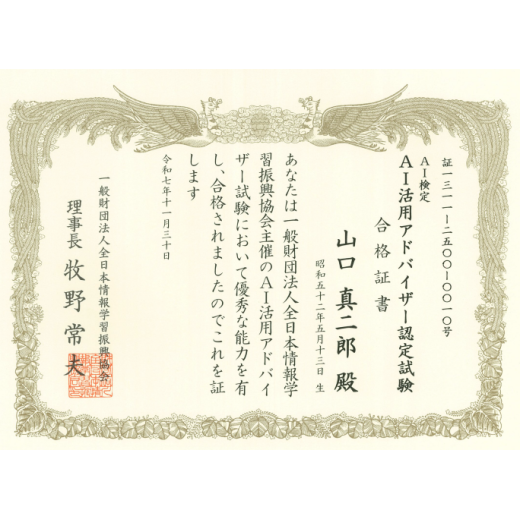 証一三一一-二五〇〇-〇〇一〇号
AI検定
AI活用アドバイザー認定試験
合格証書
山口 真二郎 殿
昭和五十二年五月十三日 生
あなたは一般財団法人全日本情報学
習振興協会主催のAI活用アドバイ
ザー試験において優秀な能力を有
し、合格されましたのでこれを証
します
令和七年十一月三十日
一般財団法人全日本情報学習振興協会
理事長 牧野常夫